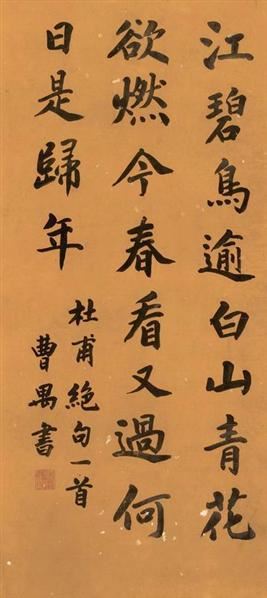 江碧鳥逾白山青花
欲燃今春看又過何
日是歸年
杜甫絕句一首
曹禺書